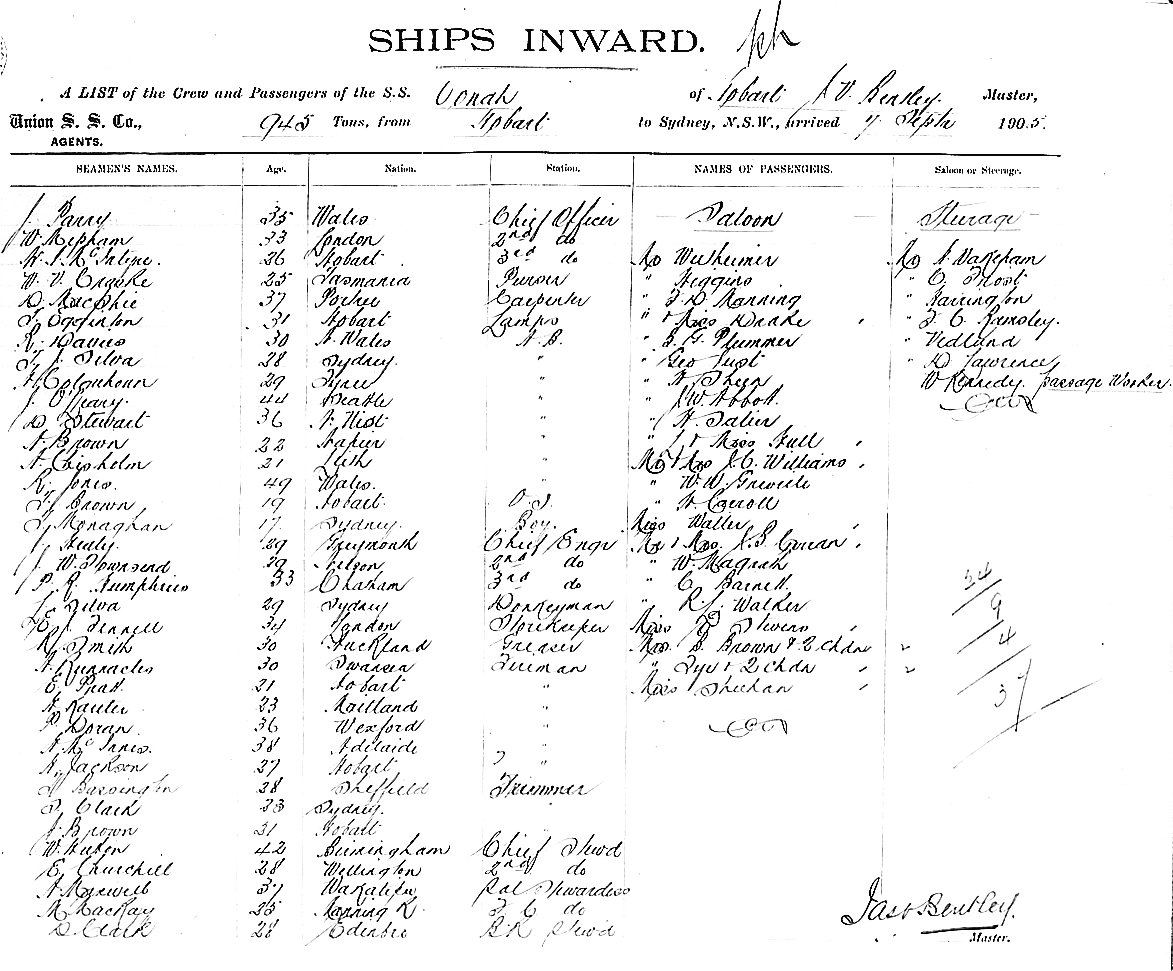 SHIPS INWARD.
A LIST of the Crew and Passengers of the S.S. Oonah of Hobart J V. Bentley. Master,
Union S. S. Co., 945 Tons, from Hobart to Sydney, N.S.W., arrived 7 Septr 1905.
AGENTS.
SEAMEN'S NAMES. Age. Nation. Station. NAMES OF PASSENGERS. Saloon or Steerage.
J. Parry 35 Wales Chief Officer Saloon Steerage
W. Mepham 33 London 2nd do
26 Hobart 3rd do Mr Wertheimer Mr A Wakeham
W. V. 25 Tasmania Purser " Higgins " C. Frost
D. MacPhie 37 Carpenter " F. D. Manning " Harrington
T. Egginton 31 Hobart Lamps " & Miss Drake " F. C. Ramsley.
R. Davies 30 N. Wales A.B. " S. G. Plummer " Vedland
F. J. Silva 28 Sydney. " " Geo Just " D Lawrence
A. Colquhoun 29 " " A Sheen W Kennedy. passage Worker.
J. O'Leary. 44 Seattle " " J W Abbott.
D. Stewart 36 " " H.
A. Brown 22 Napier " " J & Miss Hull
A. Chisholm 21 Leith " Mr & Mrs J. C. Williams
R. Jones. 49 Wales. " " W. W.
F. Brown 19 Hobart. O. S. " A Carroll
T. Monaghan 17. Sydney. Boy. Miss Waller
J. Healy 29 Greymouth Chief Engr Mr & Mrs. J. S.
J. W. Townsend 29 Nelson 2nd do " W. Magrah
P. R. Humphries 33 Chatham 3rd do " C. Barnett
F. Silva 29 Sydney Donkeyman " R. J. Walker
E. J. Fennell 34 London Storekeeper Miss Stevens
R. Smith 30 Auckland Greaser Mrs. S. Brown & 2 chdn "
A. Runnacles 30 Swansea Fireman " Fyr & 2 chdn "
E. Pratt. 21 Hobart " Miss Sheehan
23 Maitland "
P. Doran. 36 Wexford "
A. McInnes. 38 Adelaide "
A. Jackson 27 Hobart "
Bassington 28 Sheffield Trimmer
Clark 33 Sydney.
J. Brown 31 Hobart
W. 42 Birmingham Chief Stewd
E. Churchill 28 Wellington 2nd do
A Maxwell 37 Sal Stewardess
M. MacKay 25 Manning R. F. C do
D. Clark 28 Edinbro B.R Stewd
34
9
4
37
Jas V Bentley.
Master.